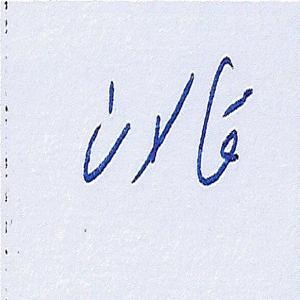 قالان